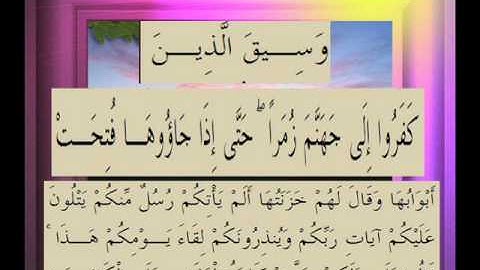 وَسِيقَ الَّذِينَ
كَفَرُوا إِلَى جَهَنَّمَ زُمَراً ۖ حَتَّى إِذَا جَاؤُوهَا فُتِحَتْ
أَبْوَابُهَا وَقَالَ لَهُمْ خَزَنَتُهَا أَلَمْ يَأْتِكُمْ رُسُلٌ مِّنكُمْ يَتْلُونَ
عَلَيْكُمْ آيَاتِ رَبِّكُمْ وَيُنذِرُونَكُمْ لِقَاءَ يَوْمِكُمْ هَذَا ۚ